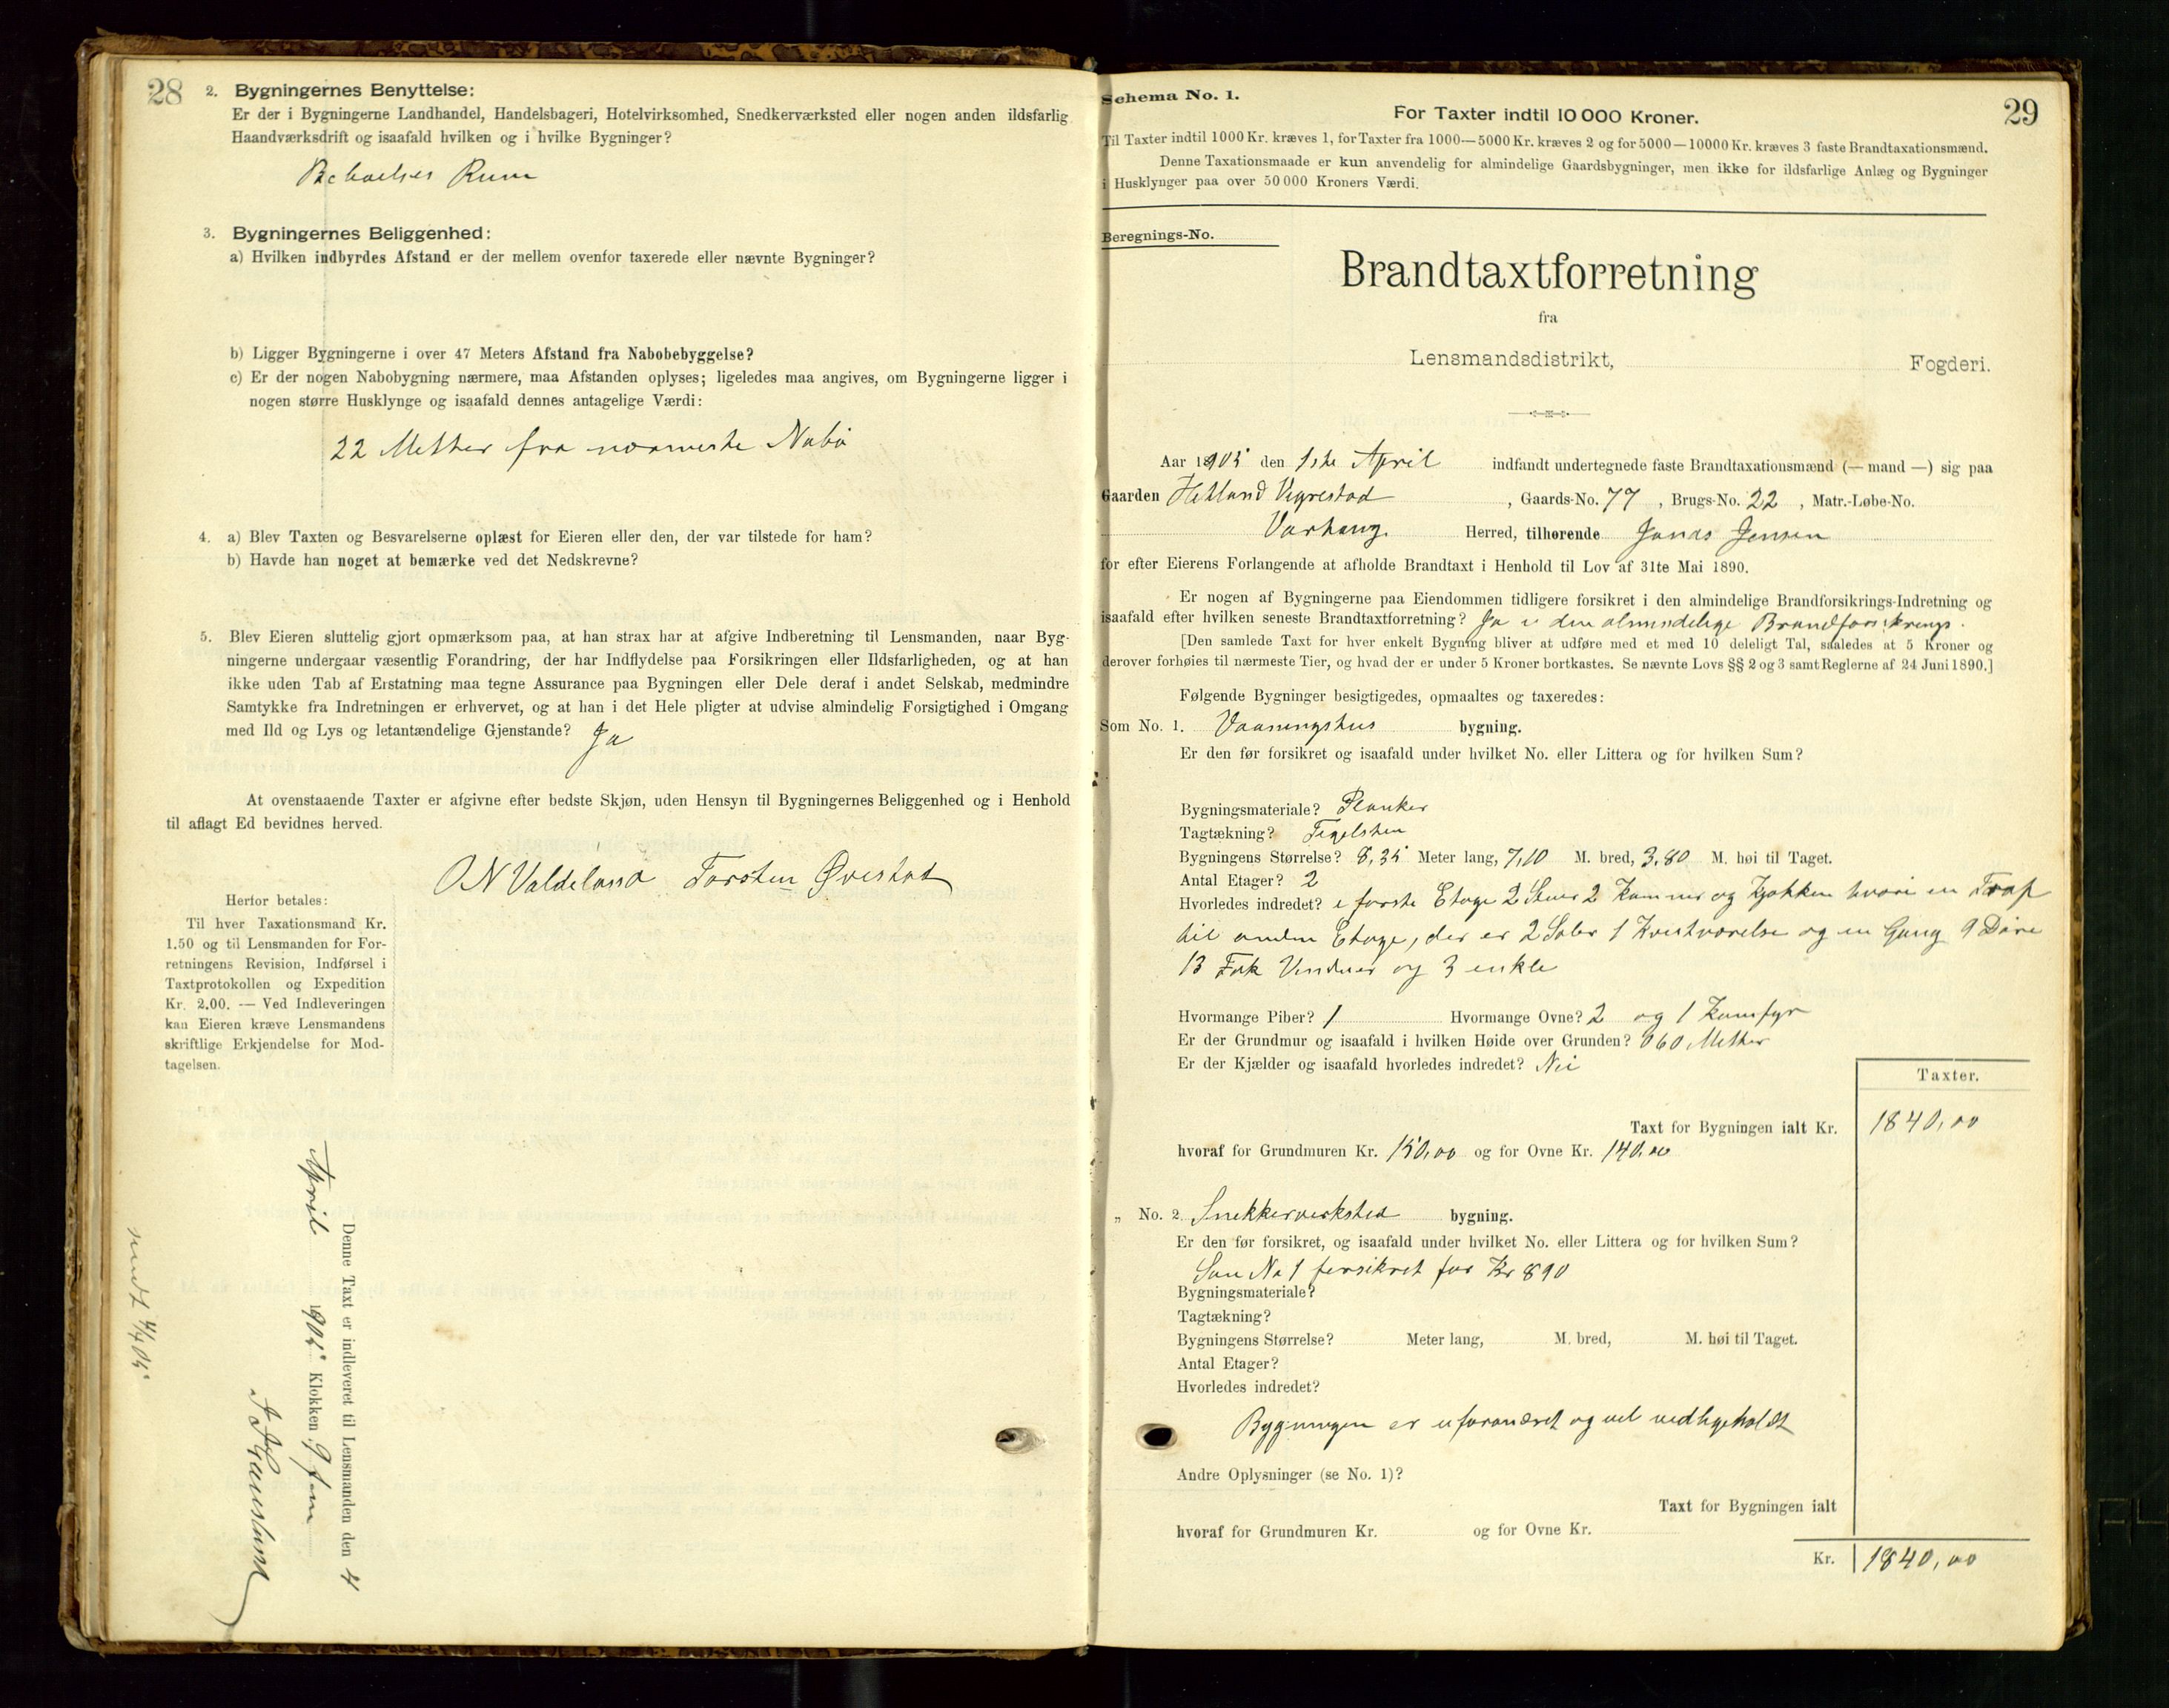 28
2. Bygningernes Benyttelse:
Er der i Bygningerne Landhandel, Handelsbageri, Hotelvirksomhed, Snedkerværksted eller nogen anden ildsfarlig
Haandværksdrift og isaafald hvilken og i hvilke Bygninger?
Beboelses Rum
3. Bygningernes Beliggenhed:
a) Hvilken indbyrdes Afstand er der mellem ovenfor taxerede eller nævnte Bygninger?
b) Ligger Bygningerne i over 47 Meters Afstand fra Nabobebyggelse?
c) Er der nogen Nabobygning nærmere, maa Afstanden oplyses; ligeledes maa angives, om Bygningerne ligger i
nogen større Husklynge og isaafald dennes antagelige Værdi:
22 Metter fra nærmeste Nabo
4. a) Blev Taxten og Besvarelserne oplæst for Eieren eller den, der var tilstede for ham?
b) Havde han noget at bemærke ved det Nedskrevne?
5. Blev Eieren sluttelig gjort opmærksom paa, at han strax har at afgive Indberetning til Lensmanden, naar Byg-
ningerne undergaar væsentlig Forandring, der har Indflydelse paa Forsikringen eller Ildsfarligheden, og at han
ikke uden Tab af Erstatning maa tegne Assurance paa Bygningen eller Dele deraf i andet Selskab, medmindre
Samtykke fra Indretningen er erhvervet, og at han i det Hele pligter at udvise almindelig Forsigtighed i Omgang
med Ild og Lys og letantændelige Gjenstande? Ja
At ovenstaaende Taxter er afgivne efter bedste Skjøn, uden Hensyn til Bygningernes Beliggenhed og i Henhold
til aflagt Ed bevidnes herved.
O N Valdeland Torsten Øvestad
Herfor betales:
Til hver Taxationsmand Kr.
1.50 og til Lensmanden for For-
retningens Revision, Indførsel i
Taxtprotokollen og Expedition
Kr. 2.00. — Ved Indleveringen
kan Eieren kræve Lensmandens
skriftlige Erkjendelse for Mod-
tagelsen.
Denne Taxt er indleveret til Lensmanden den 4
April 1905 Klokken 9 fm
sendt 4/4 05
29
Schema No. 1.
For Taxter indtil 10 000 Kroner.
Til Taxter indtil 1000 Kr. kræves 1, for Taxter fra 1000—5000 Kr. kræves 2 og for 5000—10000 Kr. kræves 3 faste Brandtaxationsmænd.
Denne Taxationsmaade er kun anvendelig for almindelige Gaardsbygninger, men ikke for ildsfarlige Anlæg og Bygninger
i Husklynger paa over 50 000 Kroners Værdi.
Beregnings-No.
Brandtaxtforretning
fra
Lensmandsdistrikt, Fogderi.
Aar 1905 den 1ste April indfandt undertegnede faste Brandtaxationsmænd (— mand —) sig paa
Gaarden Hetland Vigrestad, Gaards-No. 77, Brugs-No. 22, Matr.-Løbe-No.
Varhaug Herred, tilhørende Jonas Jensen
for efter Eierens Forlangende at afholde Brandtaxt i Henhold til Lov af 31te Mai 1890.
Er nogen af Bygningerne paa Eiendommen tidligere forsikret i den almindelige Brandforsikrings-Indretning og
isaafald efter hvilken seneste Brandtaxtforretning? Ja i den almindelige Brandforsikrings.
[Den samlede Taxt for hver enkelt Bygning bliver at udføre med et med 10 deleligt Tal, saaledes at 5 Kroner og
derover forhøies til nærmeste Tier, og hvad der er under 5 Kroner bortkastes. Se nævnte Lovs §§ 2 og 3 samt Reglerne af 24 Juni 1890.]
Følgende Bygninger besigtigedes, opmaaltes og taxeredes:
Som No. 1. Vaaningshus bygning.
Er den før forsikret og isaafald under hvilket No. eller Littera og for hvilken Sum?
Bygningsmateriale? Planker
Tagtækning? Tegelsten
Bygningens Størrelse? 8,35 Meter lang, 7,10 M. bred, 3,80 M. høi til Taget.
Antal Etager? 2
Hvorledes indredet? i første Etage 2 Stuer 2 Kammer og Kjøkken hvori en Trap
til anden Etage, der er 2 Saler 1 Kvistværelse og en Gang 9 Døre
13 Fak Vinduer og 3 enkle
Hvormange Piber? 1 Hvormange Ovne? 2 og 1 Komfyr
Er der Grundmur og isaafald i hvilken Høide over Grunden? 0 60 Metter
Er der Kjælder og isaafald hvorledes indredet? Nei
Taxter.
Taxt for Bygningen ialt Kr. 1840,00
hvoraf for Grundmuren Kr. 150,00 og for Ovne Kr. 140,00
" No. 2. Snekkerverksted bygning.
Er den før forsikret, og isaafald under hvilket No. eller Littera og for hvilken Sum?
Som No 1 forsikret for Kr 890
Bygningsmateriale?
Tagtækning?
Bygningens Størrelse? Meter lang, M. bred, M. høi til Taget.
Antal Etager?
Hvorledes indredet?
Bygningen er uforandret og vel vedligeholdt
Andre Oplysninger (se No. 1)?
Taxt for Bygningen ialt
hvoraf for Grundmuren Kr. og for Ovne Kr.
Kr. 1840,00